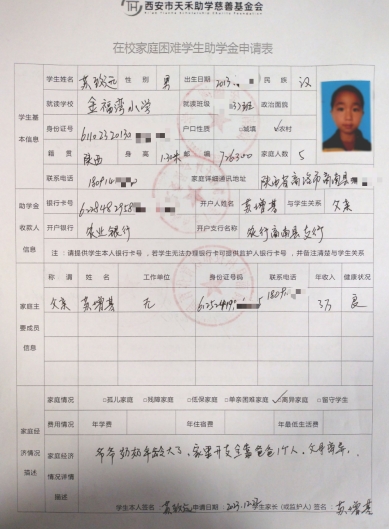 西安市天禾助学慈善基金会
在校家庭困难学生助学金申请表
学生基本信息
学生姓名 苏 远 性别 男 出生日期 2013. 民族 汉
就读学校 金福湾小学 就读班级 班 政治面貌
身份证号 户口性质 □城镇 ☑农村
籍贯 陕西 身高 邮编 726300 家庭人数 5
联系电话 家庭详细通讯地址 陕西省商洛市商南县
助学金收款人信息
银行卡号 开户人姓名 苏增基 与学生关系 父亲
开户银行 农业银行 开户支行名称 农行商南县支行
注：请提供学生本人银行卡号，若无法办理银行卡可提供监护人银行卡号，并备注清楚与学生关系
家庭主要成员信息
称谓 姓名 工作单位 身份证号码 联系电话 年收入 健康状况
父亲 苏增基 无 3万 良
家庭情况 □孤儿家庭 □残障家庭 □低保家庭 □单亲困难家庭 ☑离异家庭 □留守学生
家庭经济情况描述
费用情况 年学费 年住宿费 年最低生活费
家庭经济情况详情描述
爷爷奶奶年龄大了，家里开支全靠爸爸1个人，
学生本人签名 申请日期 学生家长（或监护人）签名： 苏增基